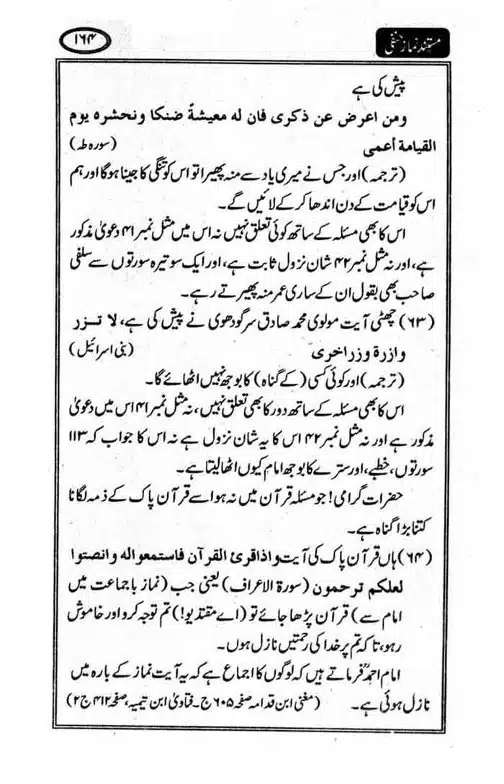 مستند نماز حنفی
۱۶۴
پیش کی ہے
ومن اعرض عن ذکری فان له معیشةً ضنکا ونحشره یوم
القیامة أعمی (سورہ طہ)
(ترجمہ) اور جس نے میری یاد سے منہ پھیرا تو اس کو تنگی کا جینا ہوگا اور ہم
اس کو قیامت کے دن اندھا کر کے لائیں گے۔
اس کا بھی مسئلہ کے ساتھ کوئی تعلق نہیں نہ اس میں مثل نمبر ۴۱ دعویٰ مذکور
ہے، اور نہ مثل نمبر ۴۲ شان نزول ثابت ہے، اور ایک سو تیرہ سورتوں سے سلفی
صاحب بھی بقول ان کے ساری عمر منہ پھیرتے رہے۔
(۶۳) چھٹی آیت مولوی محمد صادق سرگودھوی نے پیش کی ہے، لا تزر
وازرة وزر اخری (بنی اسرائیل)
(ترجمہ) اور کوئی کسی (کے گناہ) کا بوجھ نہیں اٹھائے گا۔
اس کا بھی مسئلہ کے ساتھ دور کا بھی تعلق نہیں، نہ مثل نمبر ۴۱ اس میں دعویٰ
مذکور ہے اور نہ مثل نمبر ۴۲ اس کا یہ شان نزول ہے نہ اس کا جواب کہ ۱۱۳
سورتوں، خطبے، اور سترے کا بوجھ امام کیوں اٹھا لیتا ہے۔
حضرات گرامی! جو مسئلہ قرآن میں نہ ہو اسے قرآن پاک کے ذمہ لگانا
کتنا بڑا گناہ ہے۔
(۶۴) ہاں قرآن پاک کی آیت واذاقرئ القرآن فاستمعواله وانصتوا
لعلکم ترحمون (سورة الاعراف) یعنی جب (نماز باجماعت میں
امام سے) قرآن پڑھا جائے تو (اے مقتدیو!) تم توجہ کرو اور خاموش
رہو، تاکہ تم پر خدا کی رحمتیں نازل ہوں۔
امام احمدؒ فرماتے ہیں کہ لوگوں کا اجماع ہے کہ یہ آیت نماز کے بارہ میں
نازل ہوئی ہے۔ (مغنی ابن قدامہ صفحہ ۶۰۵ ج۔ فتاویٰ ابن تیمیہ، صفحہ ۴۱۲ ج ۲)